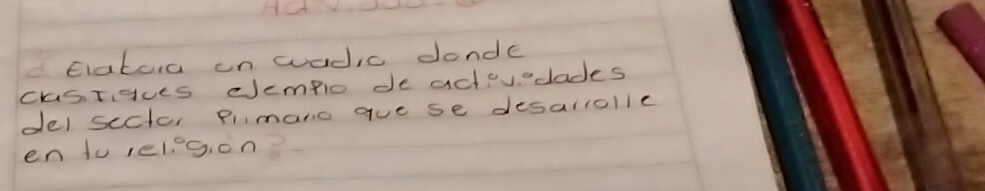 Elabora un cuadro donde
clasifiques ejemplo de actividades
del sector primario que se desarrolle
en tu religión?